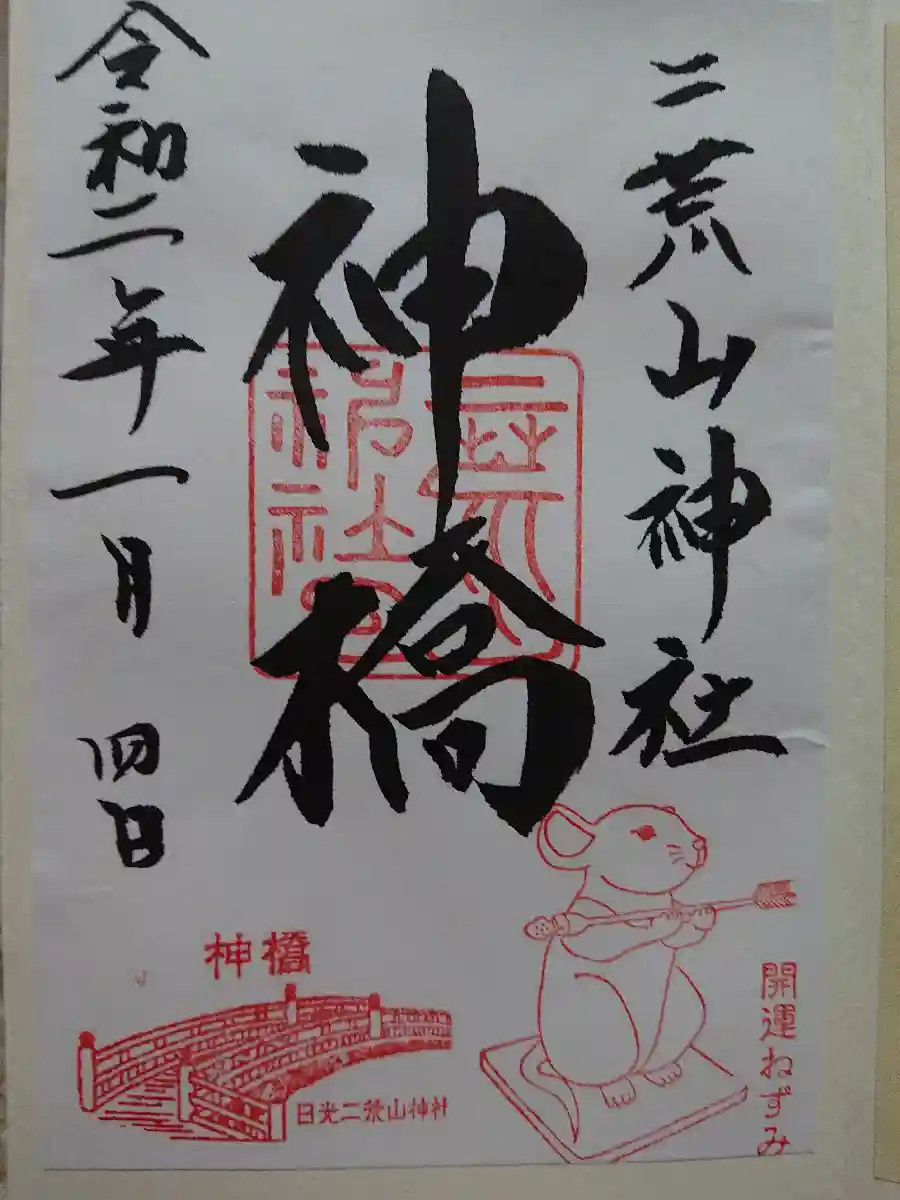 二荒山神社
神橋
令和二年一月四日
二荒山神社
神橋
日光二荒山神社
開運ねずみ